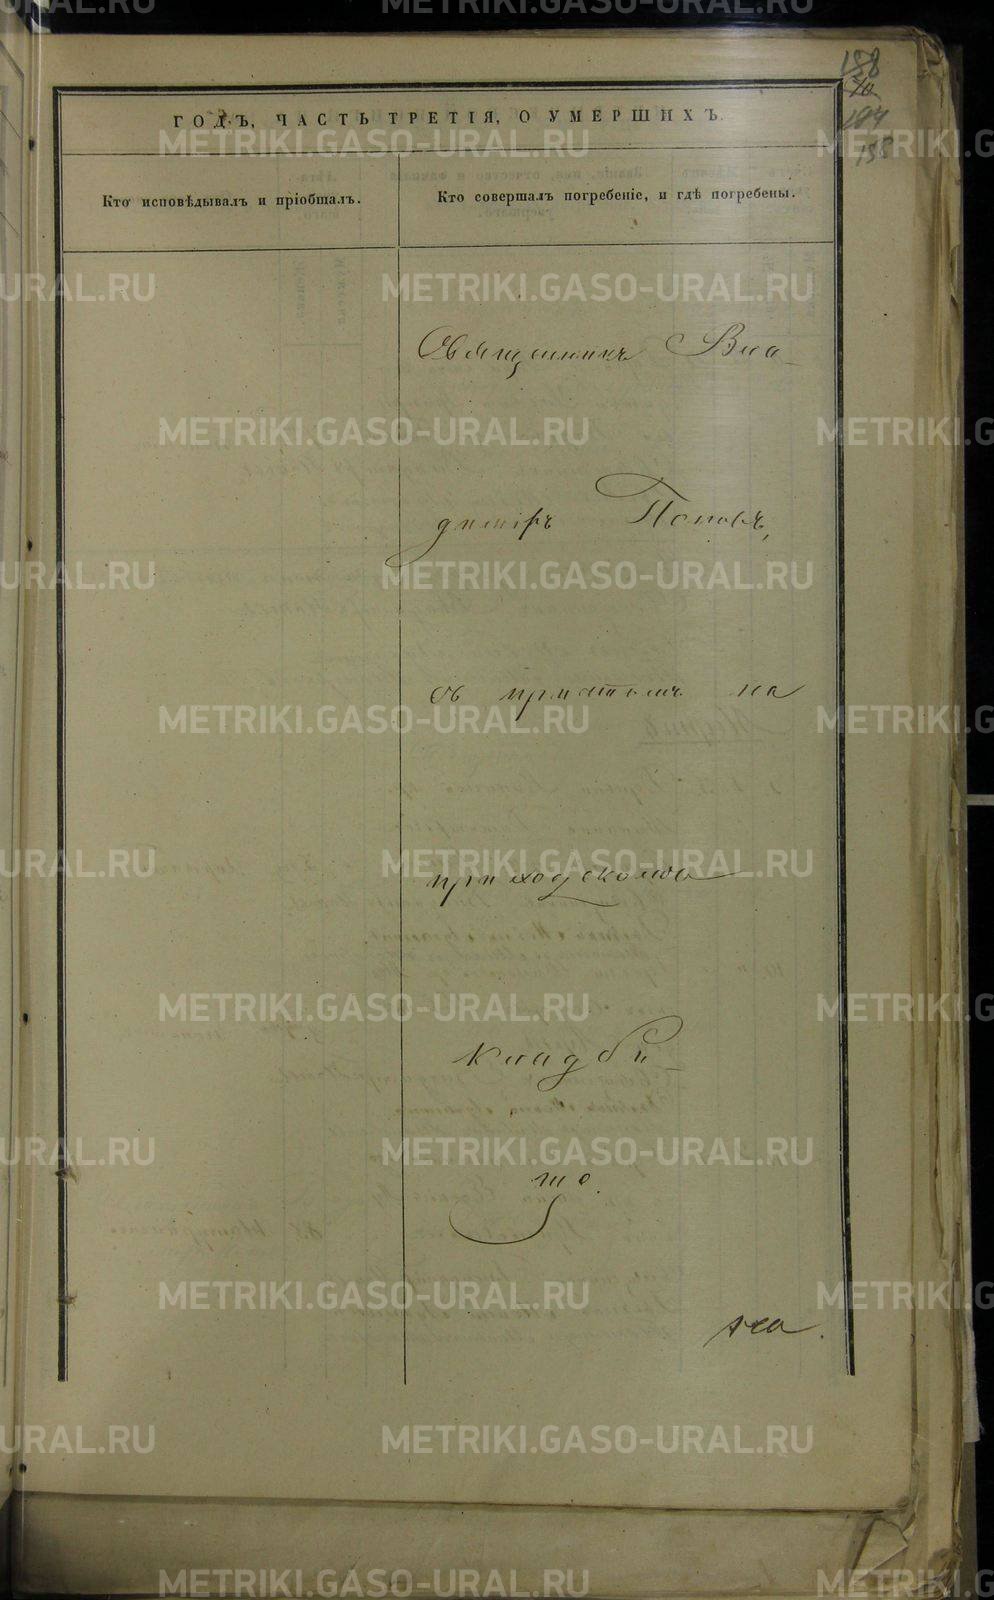 METRIKI.GASO-URAL.RU
188
194
155
ГОДЪ, ЧАСТЬ ТРЕТІЯ, О УМЕРШИХЪ.
Кто исповѣдывалъ и пріобщалъ.
Кто совершалъ погребеніе, и гдѣ погребены.
Священникъ Вла-
диміръ Поповъ,
съ причтомъ на
приходскомъ
кладби-
ще.